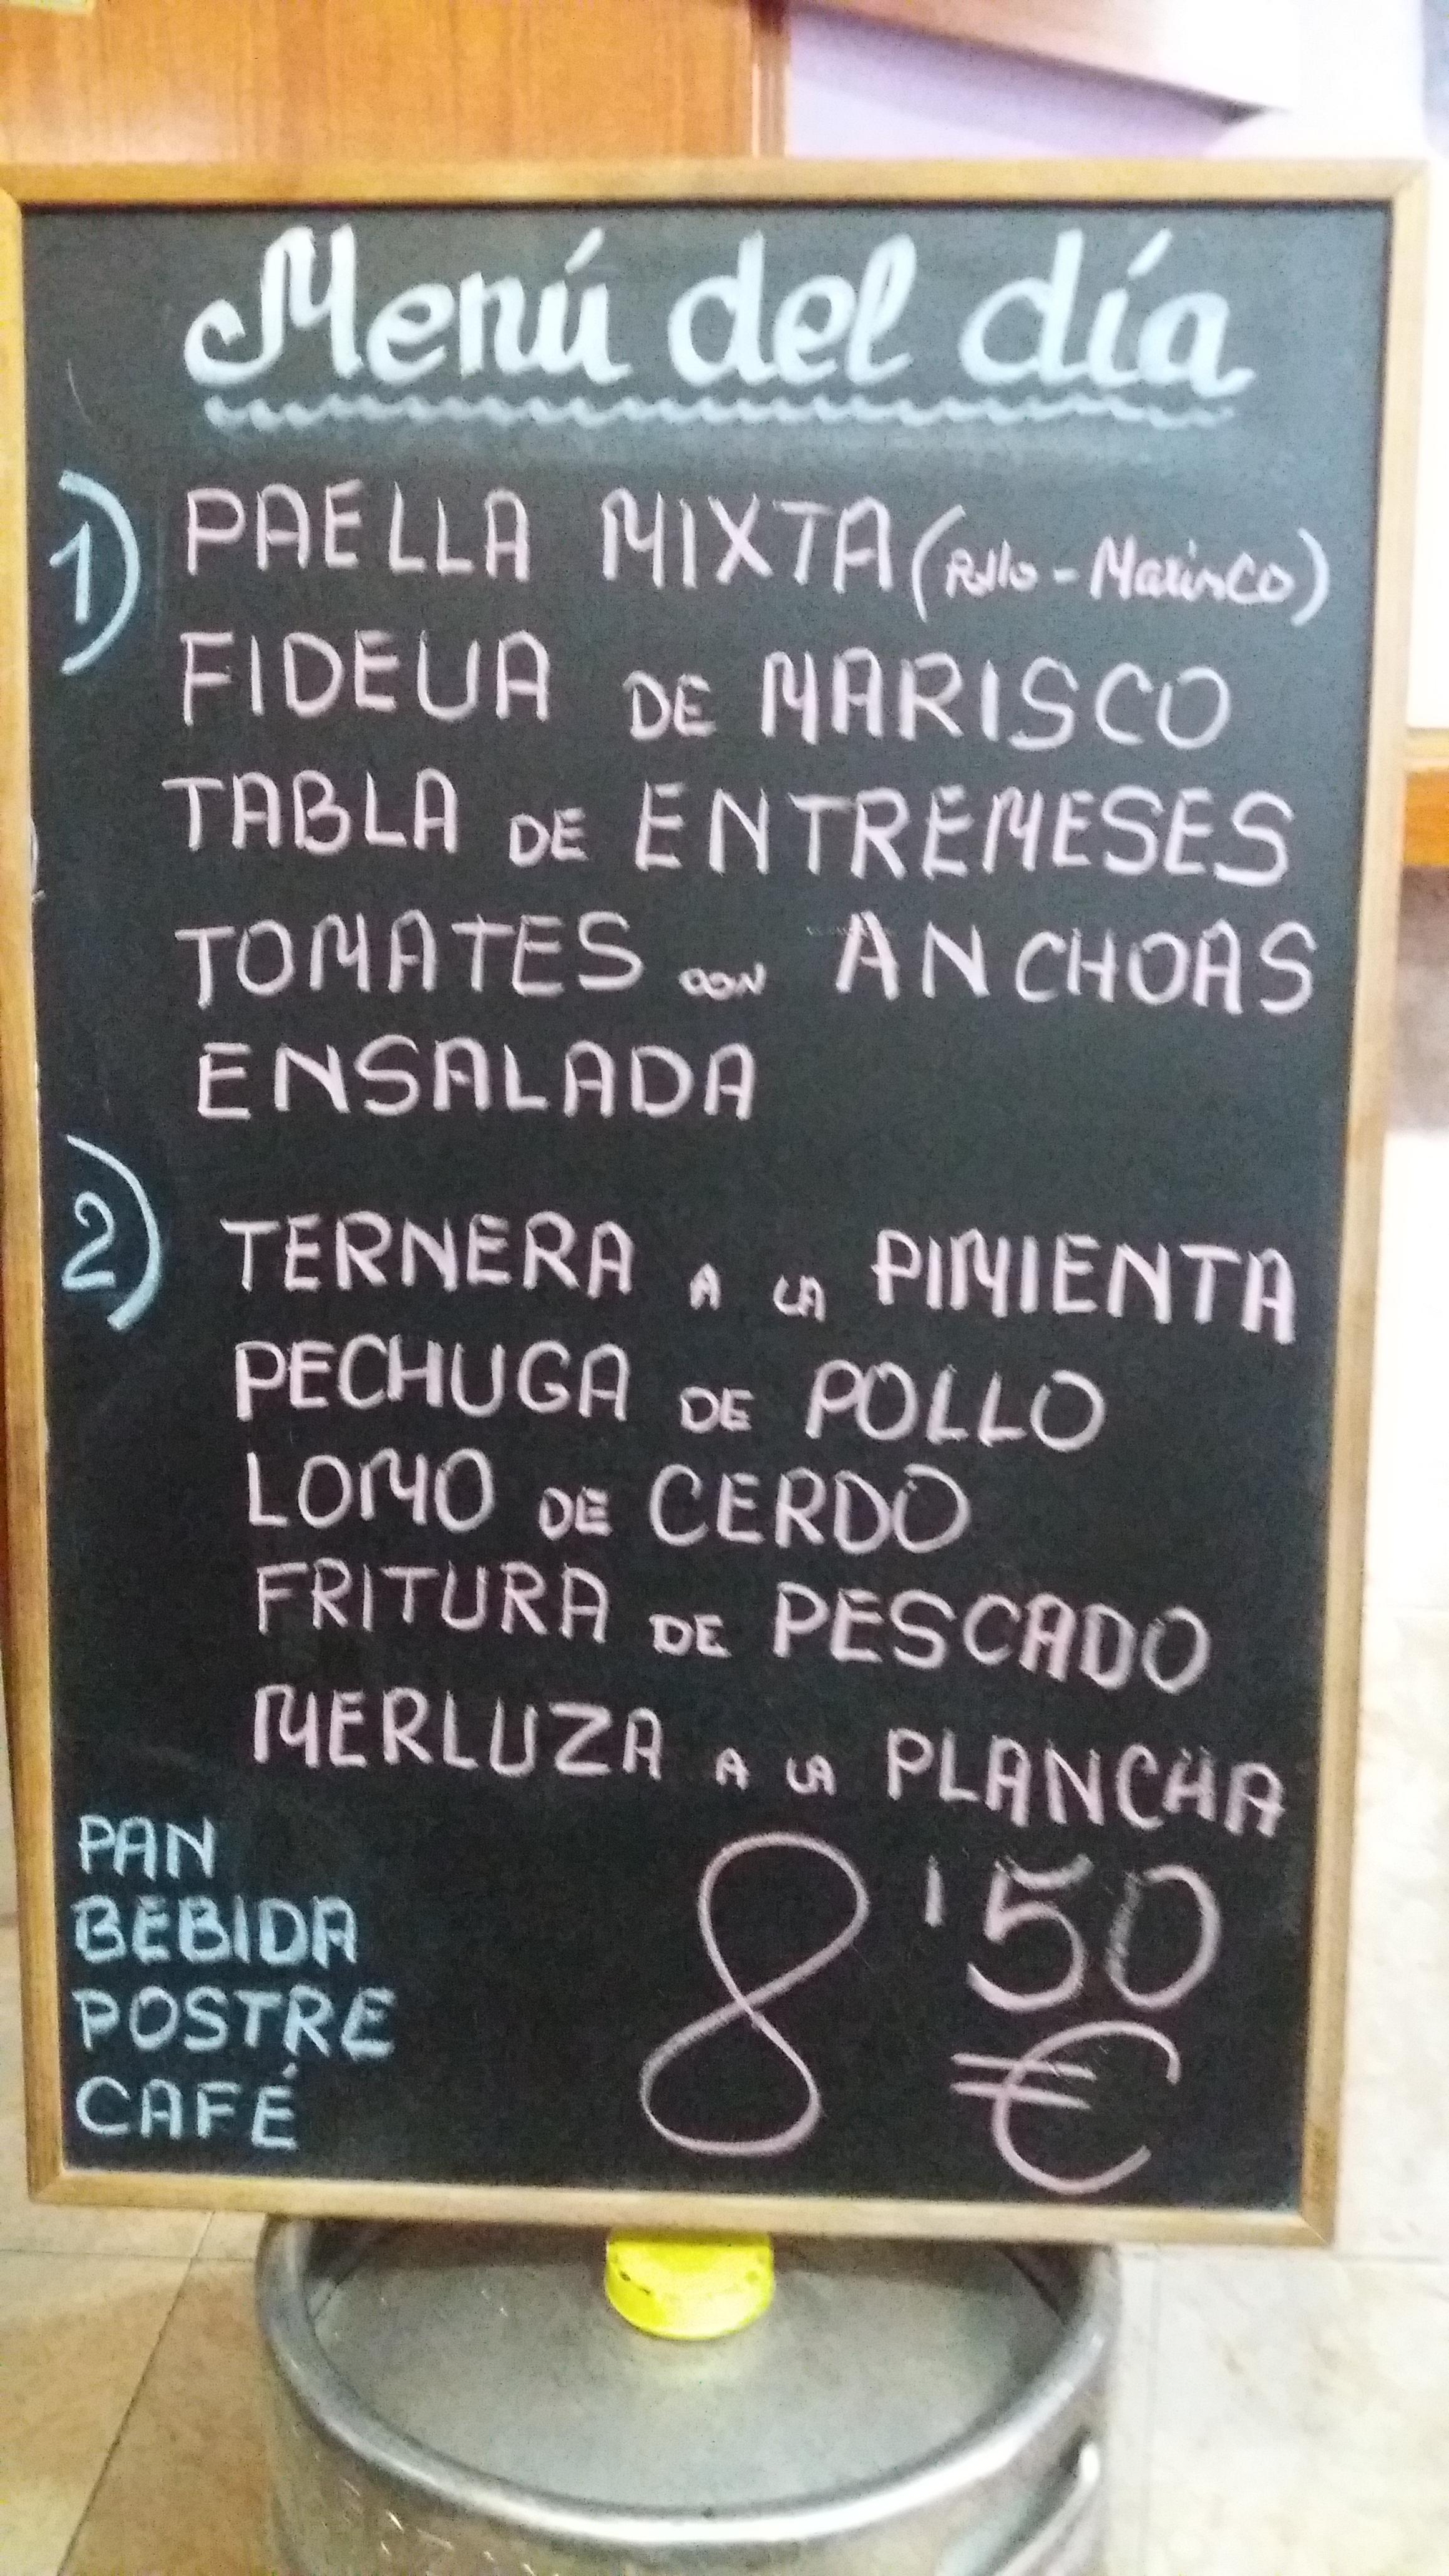 Menú del día
1) PAELLA MIXTA (Pollo - Marisco)
FIDEUA DE MARISCO
TABLA DE ENTREMESES
TOMATES CON ANCHOAS
ENSALADA
2) TERNERA A LA PIMIENTA
PECHUGA DE POLLO
LOMO DE CERDO
FRITURA DE PESCADO
MERLUZA A LA PLANCHA
PAN
BEBIDA
POSTRE
CAFÉ
8'50
€